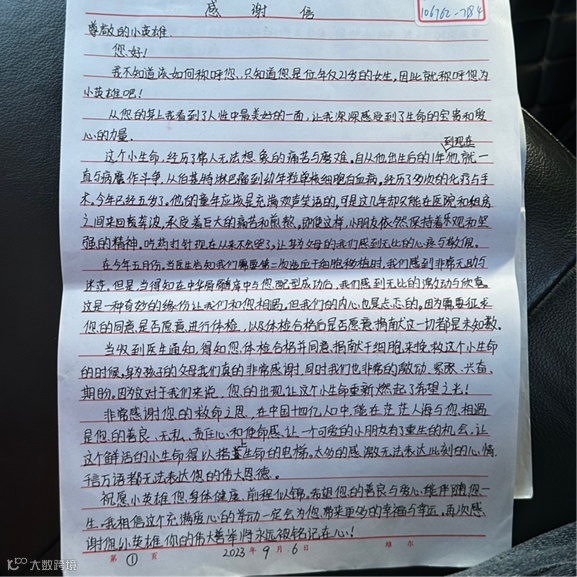 感谢信
106762-7184
尊敬的小英雄
您好!
我不知道该如何称呼您,只知道您是位年仅21岁的女生,因此就称呼您为
小英雄吧!
从您的身上我看到了人性中最美好的一面,让我深深感受到了生命的宝贵和爱
心的力量.
到现在
这个小生命,经历了常人无法想象的痛苦与磨难。自从他出生后的1年他就一
直与病魔作斗争,从伯基特淋巴瘤到幼年粒单核细胞白血病,经历了多次的化疗与手
术,今年已经五岁了,他的童年应该是充满欢声笑语的,可是这几年却只能在医院和租房
之间来回奔波,承受着巨大的痛苦和煎熬,即使这样,小朋友依然保持着乐观和坚
强的精神,吃药打针现在从来不会哭了,让身为父母的我们感到无比的心疼与敬佩。
在今年五月份,当医生告知我们需要第二次造血干细胞移植时,我们感到非常无助与
迷茫,但是,当得知在中华骨髓库中与您配型成功后,我们感到无比的激动与欣喜,
这是一种奇妙的缘份让我们和您相遇,但我们的内心也是忐忑的,因为需要征求
您的同意,是否愿意进行体检,以及体检合格后是否愿意捐献这一切都是未知数。
当收到医生通知,得知您体检合格并同意捐献干细胞来挽救这个小生命
的时候,身为孩子的父母我们真的非常感谢!同时我们也非常的激动、紧张、兴奋、
期盼。因为这对于我们来说,您的出现让这个小生命重新燃起了希望之光!
非常感谢您的救命之恩,在中国十四亿人口中,能在茫茫人海与您相遇
是您的善良、无私、责任心和使命感,让一个可爱的小朋友有了重生的机会,让
这个鲜活的小生命得以搭上生命的电梯。太多的感激无法表达此刻的心情,
千言万语都无法表达您的伟大恩德。
祝愿小英雄您身体健康,前程似锦,希望您的善良与爱心能伴随您一
生,我相信这个充满爱心的举动一定会为您带来更多的幸福与幸运。再次感
谢您小英雄,你的伟大善举将永远被铭记在心!
第 ① 页 2023年9月6日
大数跨境